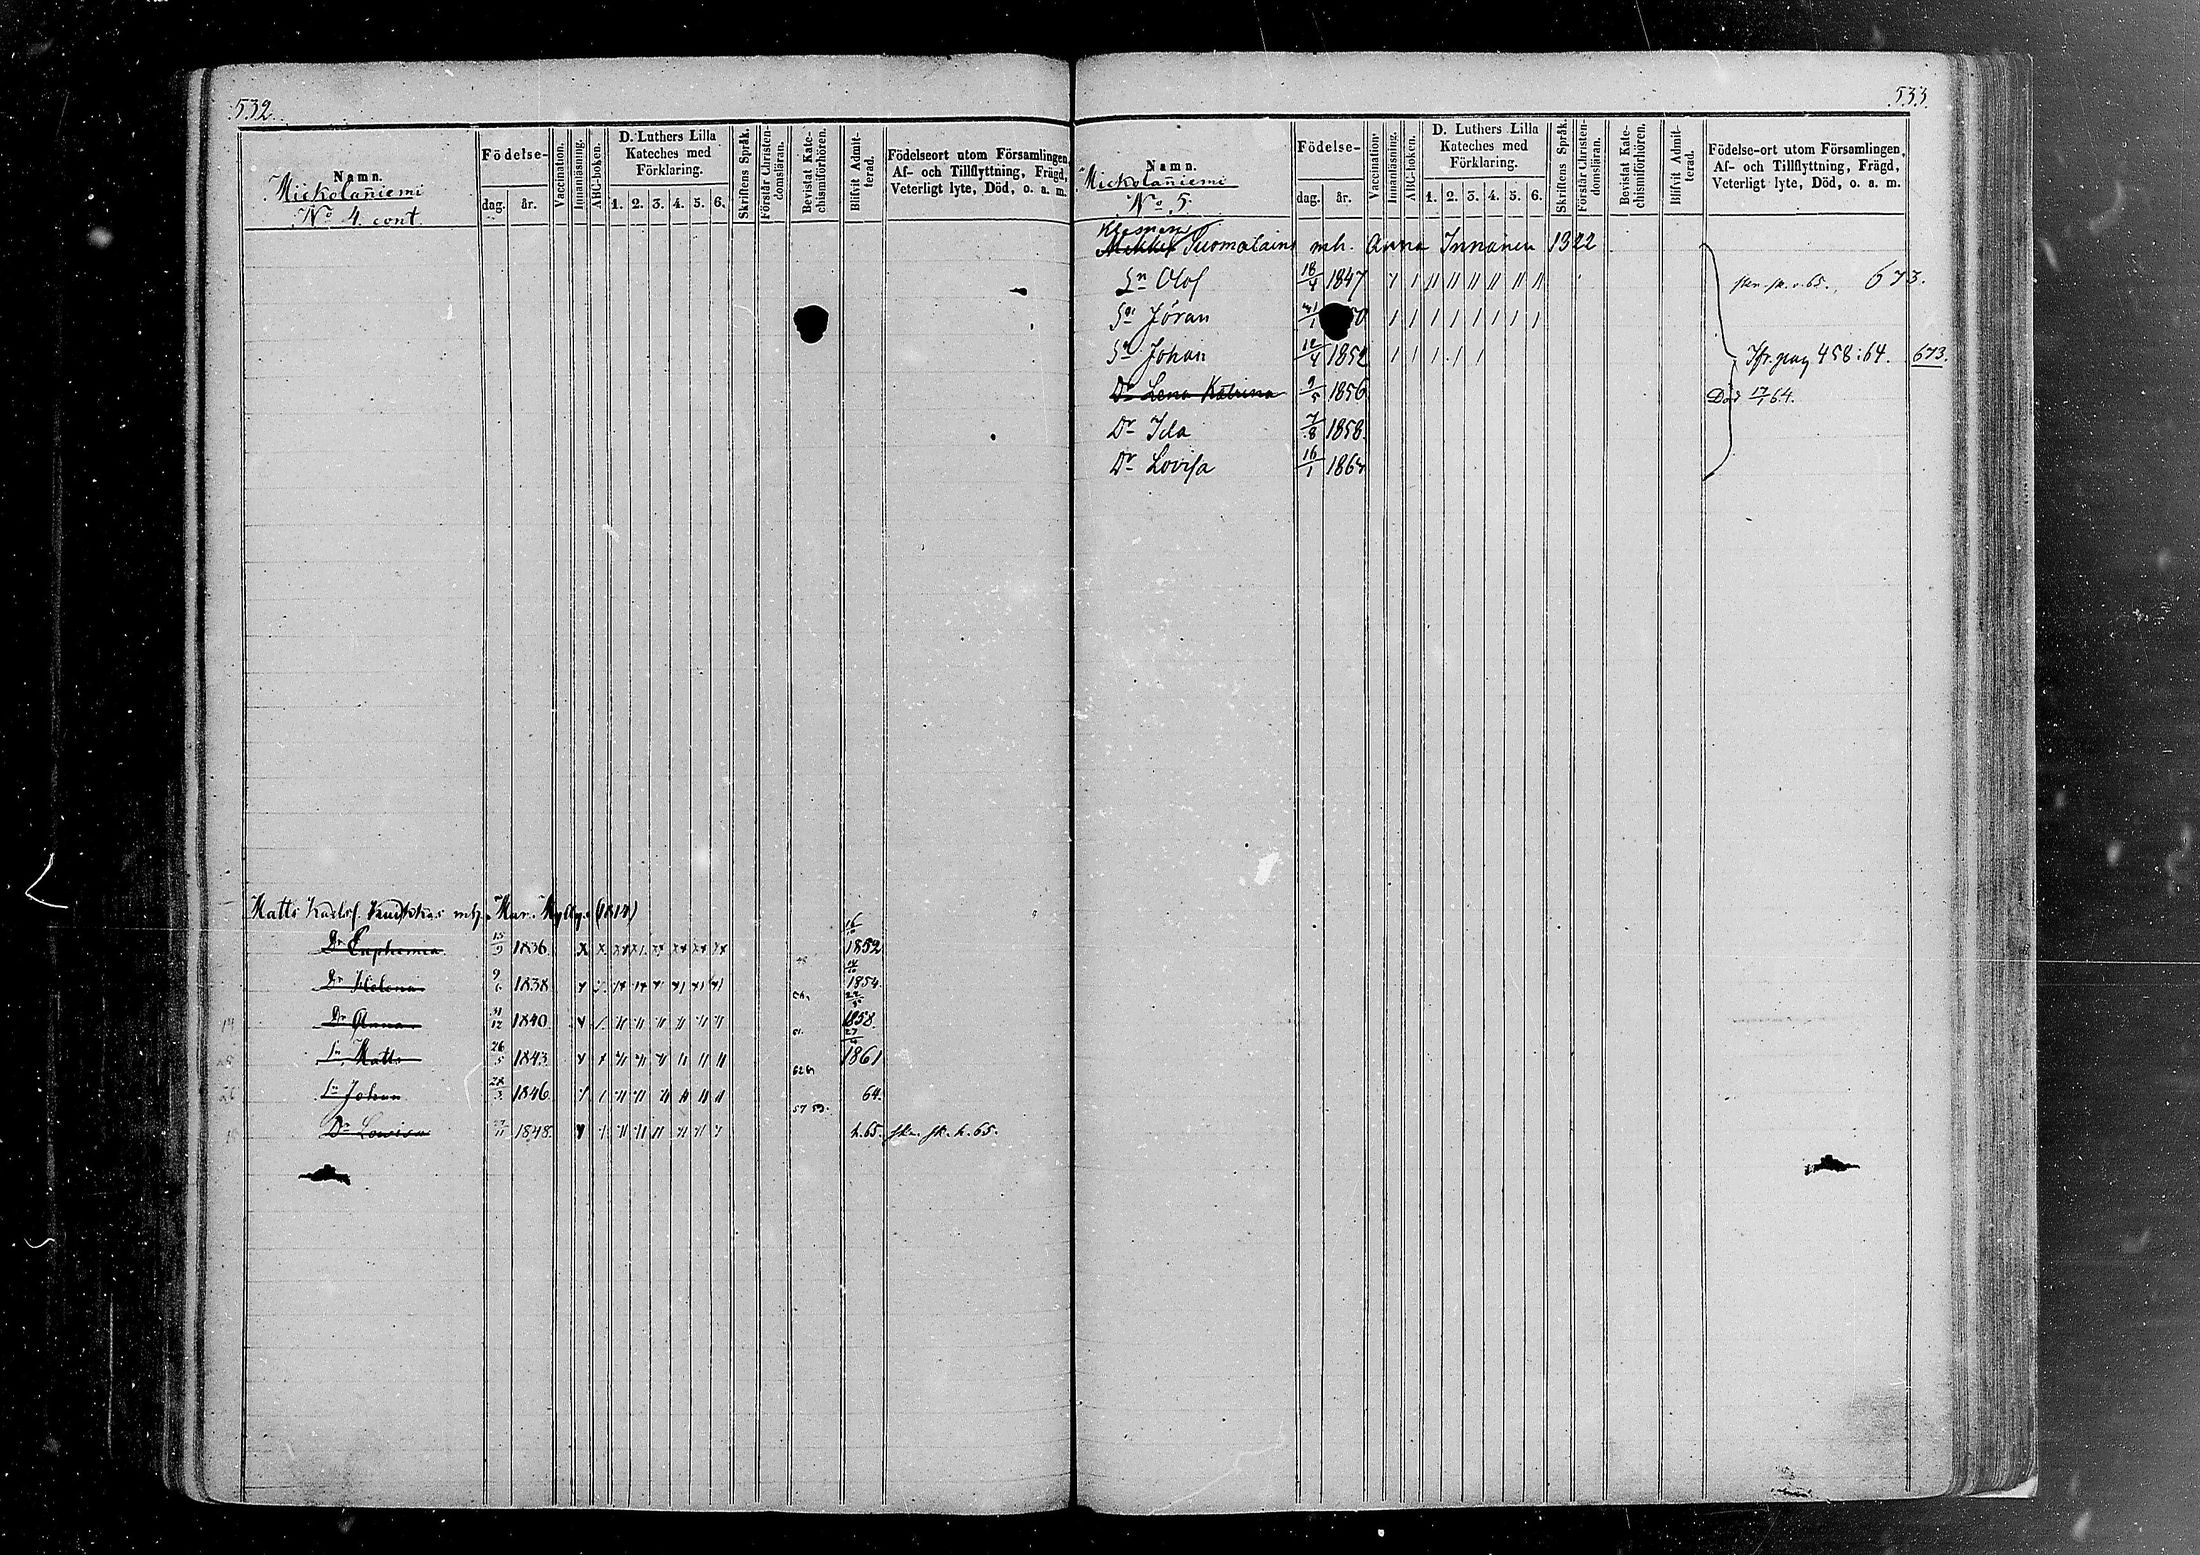 532
Namn.
Mickolaniemi
No 4. cont
Födelse-
dag. år.
Vaccination.
Innanläsning.
ABC-boken.
D. Luthers Lilla
Kateches med
Förklaring.
1. 2. 3. 4. 5. 6.
Skriftens Språk.
Förstår Christen-
domsläran.
Bevistat Kate-
chismiförhören.
Blifvit Admit-
terad.
Födelseort utom Församlingen,
Af- och Tillflyttning, Frägd,
Veterligt lyte, Död, o. a. m.
Matts Karlss. mh. Mar. (1814)
Dr Euphemia 15/9 1836. 1852
Dr Helena 9/6 1838 1854.
Dr Anna 31/12 1840 1858.
Sn Matts 26/5 1843. 1861
Sn Johan 28/3 1846. 64.
Dr Lowisa 1848. h. 65. skr. sk. h. 65.
533
Namn.
Mickolaniemi
No 5
Födelse-
dag. år.
Vaccination
Innanläsning.
ABC-boken.
D. Luthers Lilla
Kateches med
Förklaring.
1. 2. 3. 4. 5. 6.
Skriftens Språk.
Förstår Christen-
domsläran.
Bevistat Kate-
chismiförhören.
Blifvit Admit-
terad.
Födelse-ort utom Församlingen,
Af- och Tillflyttning, Frägd,
Veterligt lyte, Död, o. a. m.
Tuomolain mh. Anna Innanen 1322
Sn Olof 18/4 1847 673.
Sn Jöran 50
Sn Johan 12/4 1852 pag 458:64. 673.
Dr Lena Katrina 9/5 1856 Död 17/1 64.
Dr Ida 7/8 1858.
Dr Lovisa 16/1 1864